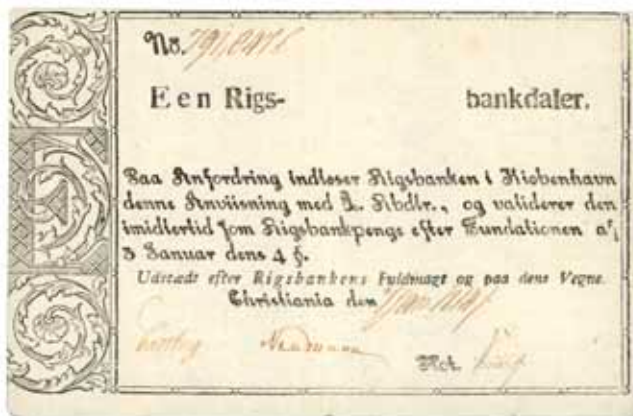 No.
Een Rigs- bankdaler.
Paa Anfordring indløser Rigsbanken i Kiøbenhavn
denne Anviisning med 1. Rbdlr., og validerer den
imidlertid som Rigsbankpenge efter Fundationen af
5 Januar dens 4 §.
Udstædt efter Rigsbankens Fuldmagt og paa dens Vegne.
Christiania den
Not.